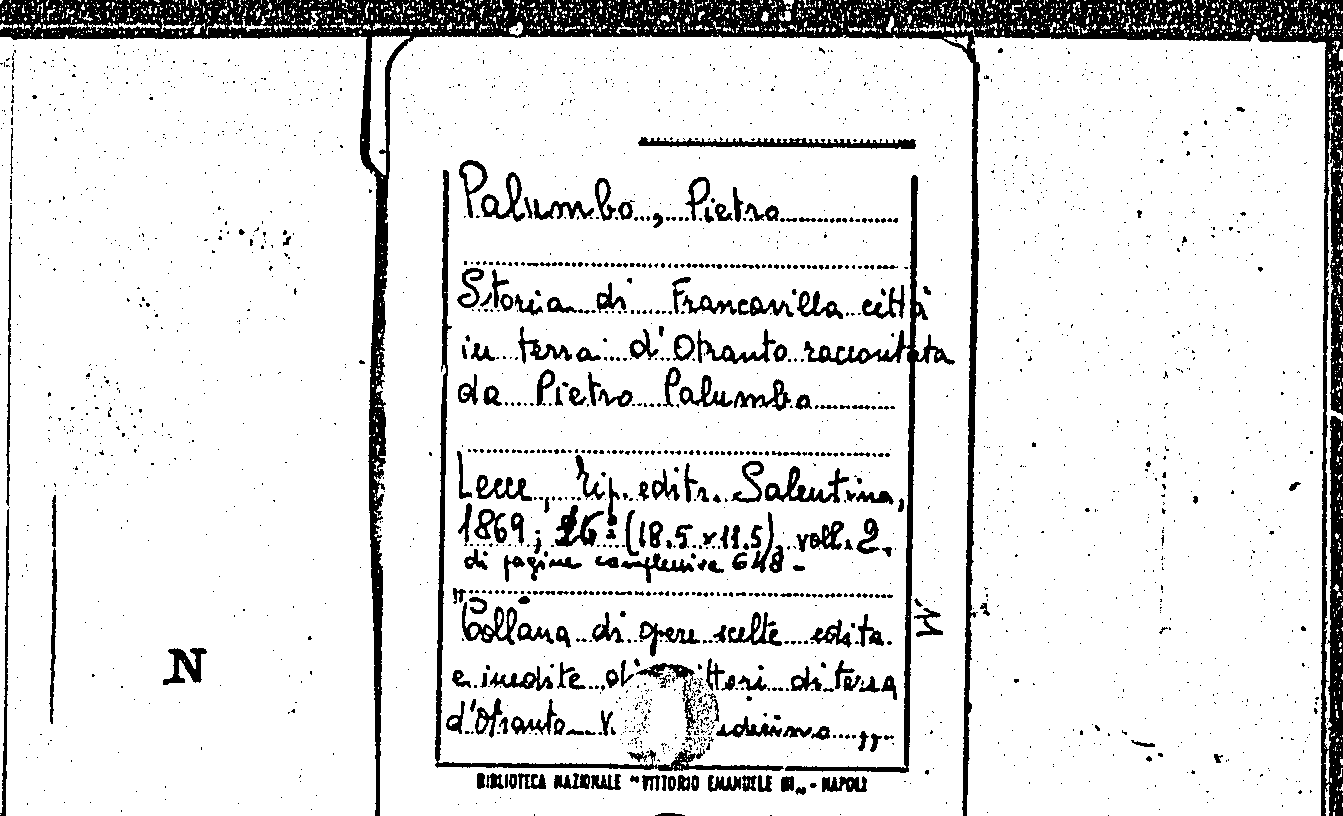 Palumbo, Pietro
Storia di Francavilla città
in terra d'Otranto raccontata
da Pietro Palumbo
Lecce, Tip. editr. Salentina,
1869; 16° (18.5 x 11.5), voll. 2.
di pagine complessive 648 -
"Collana di opere scelte edite
e inedite di ittori di terra
d'Otranto V. edicima "
N
BIBLIOTECA NAZIONALE "VITTORIO EMANUELE III" - NAPOLI